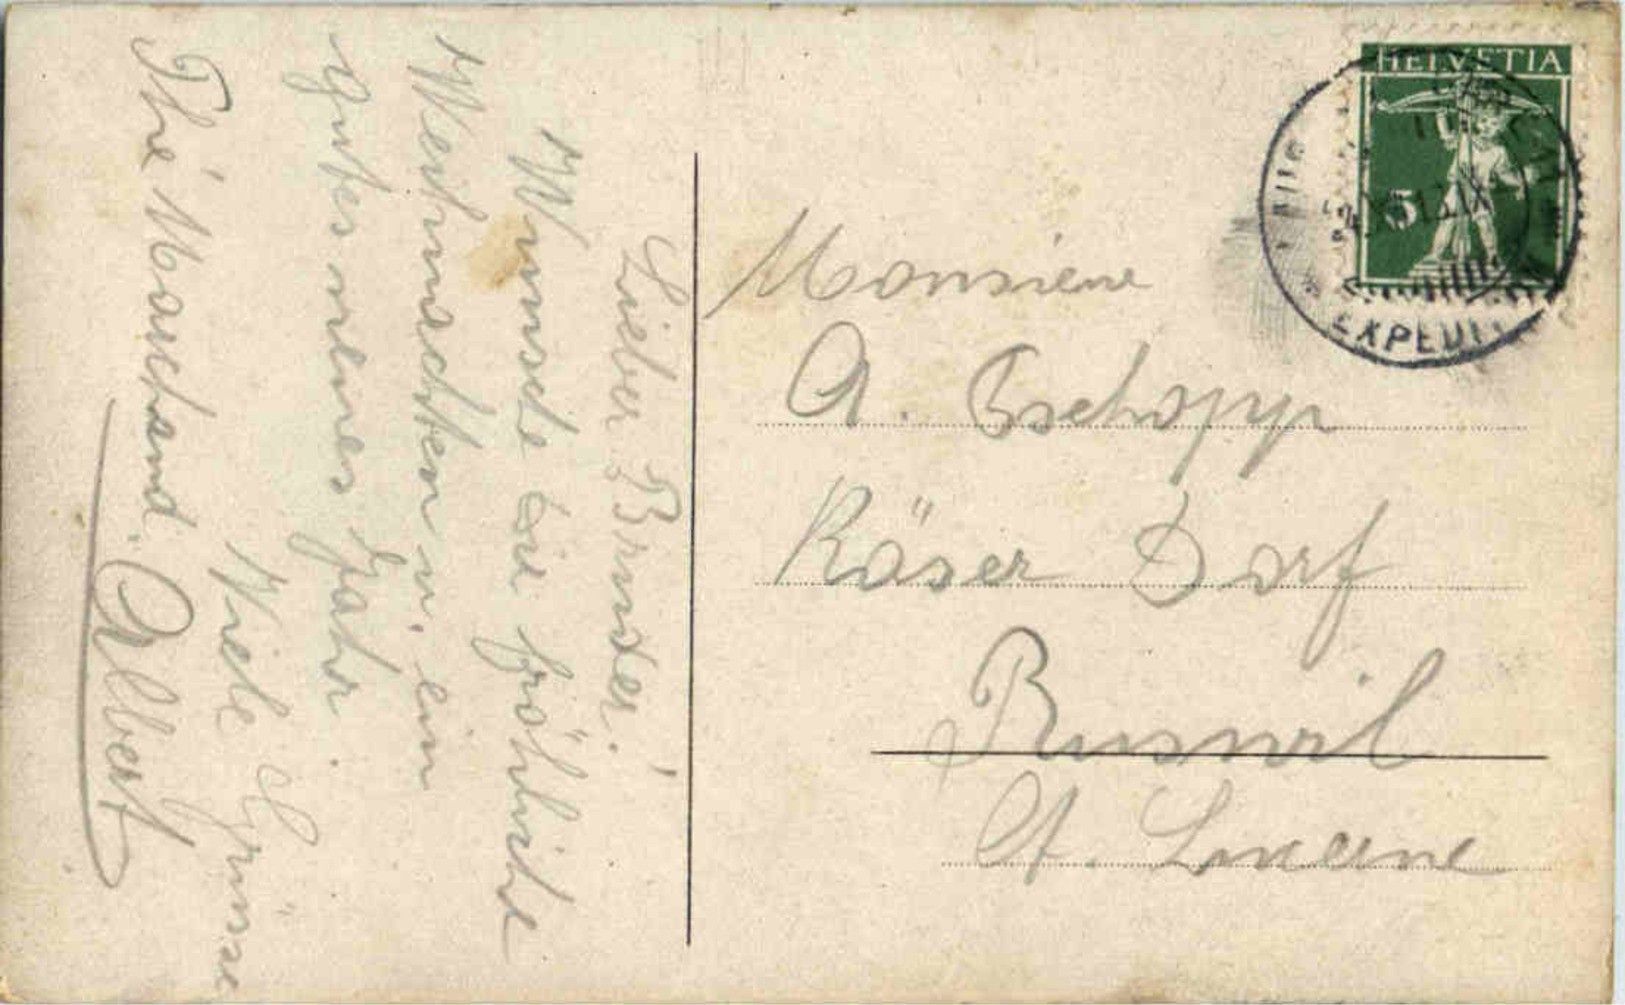 Lieber Bruder!
Wünsche Dir fröhliche
Weihnachten u. ein
gutes neues Jahr.
Viele Grüsse
Albert
Thé Marchand.
Monsieur
A. Tschopp
Käser Dorf
Ruswil
Ct. Lucerne
HELVETIA
5
EXPED